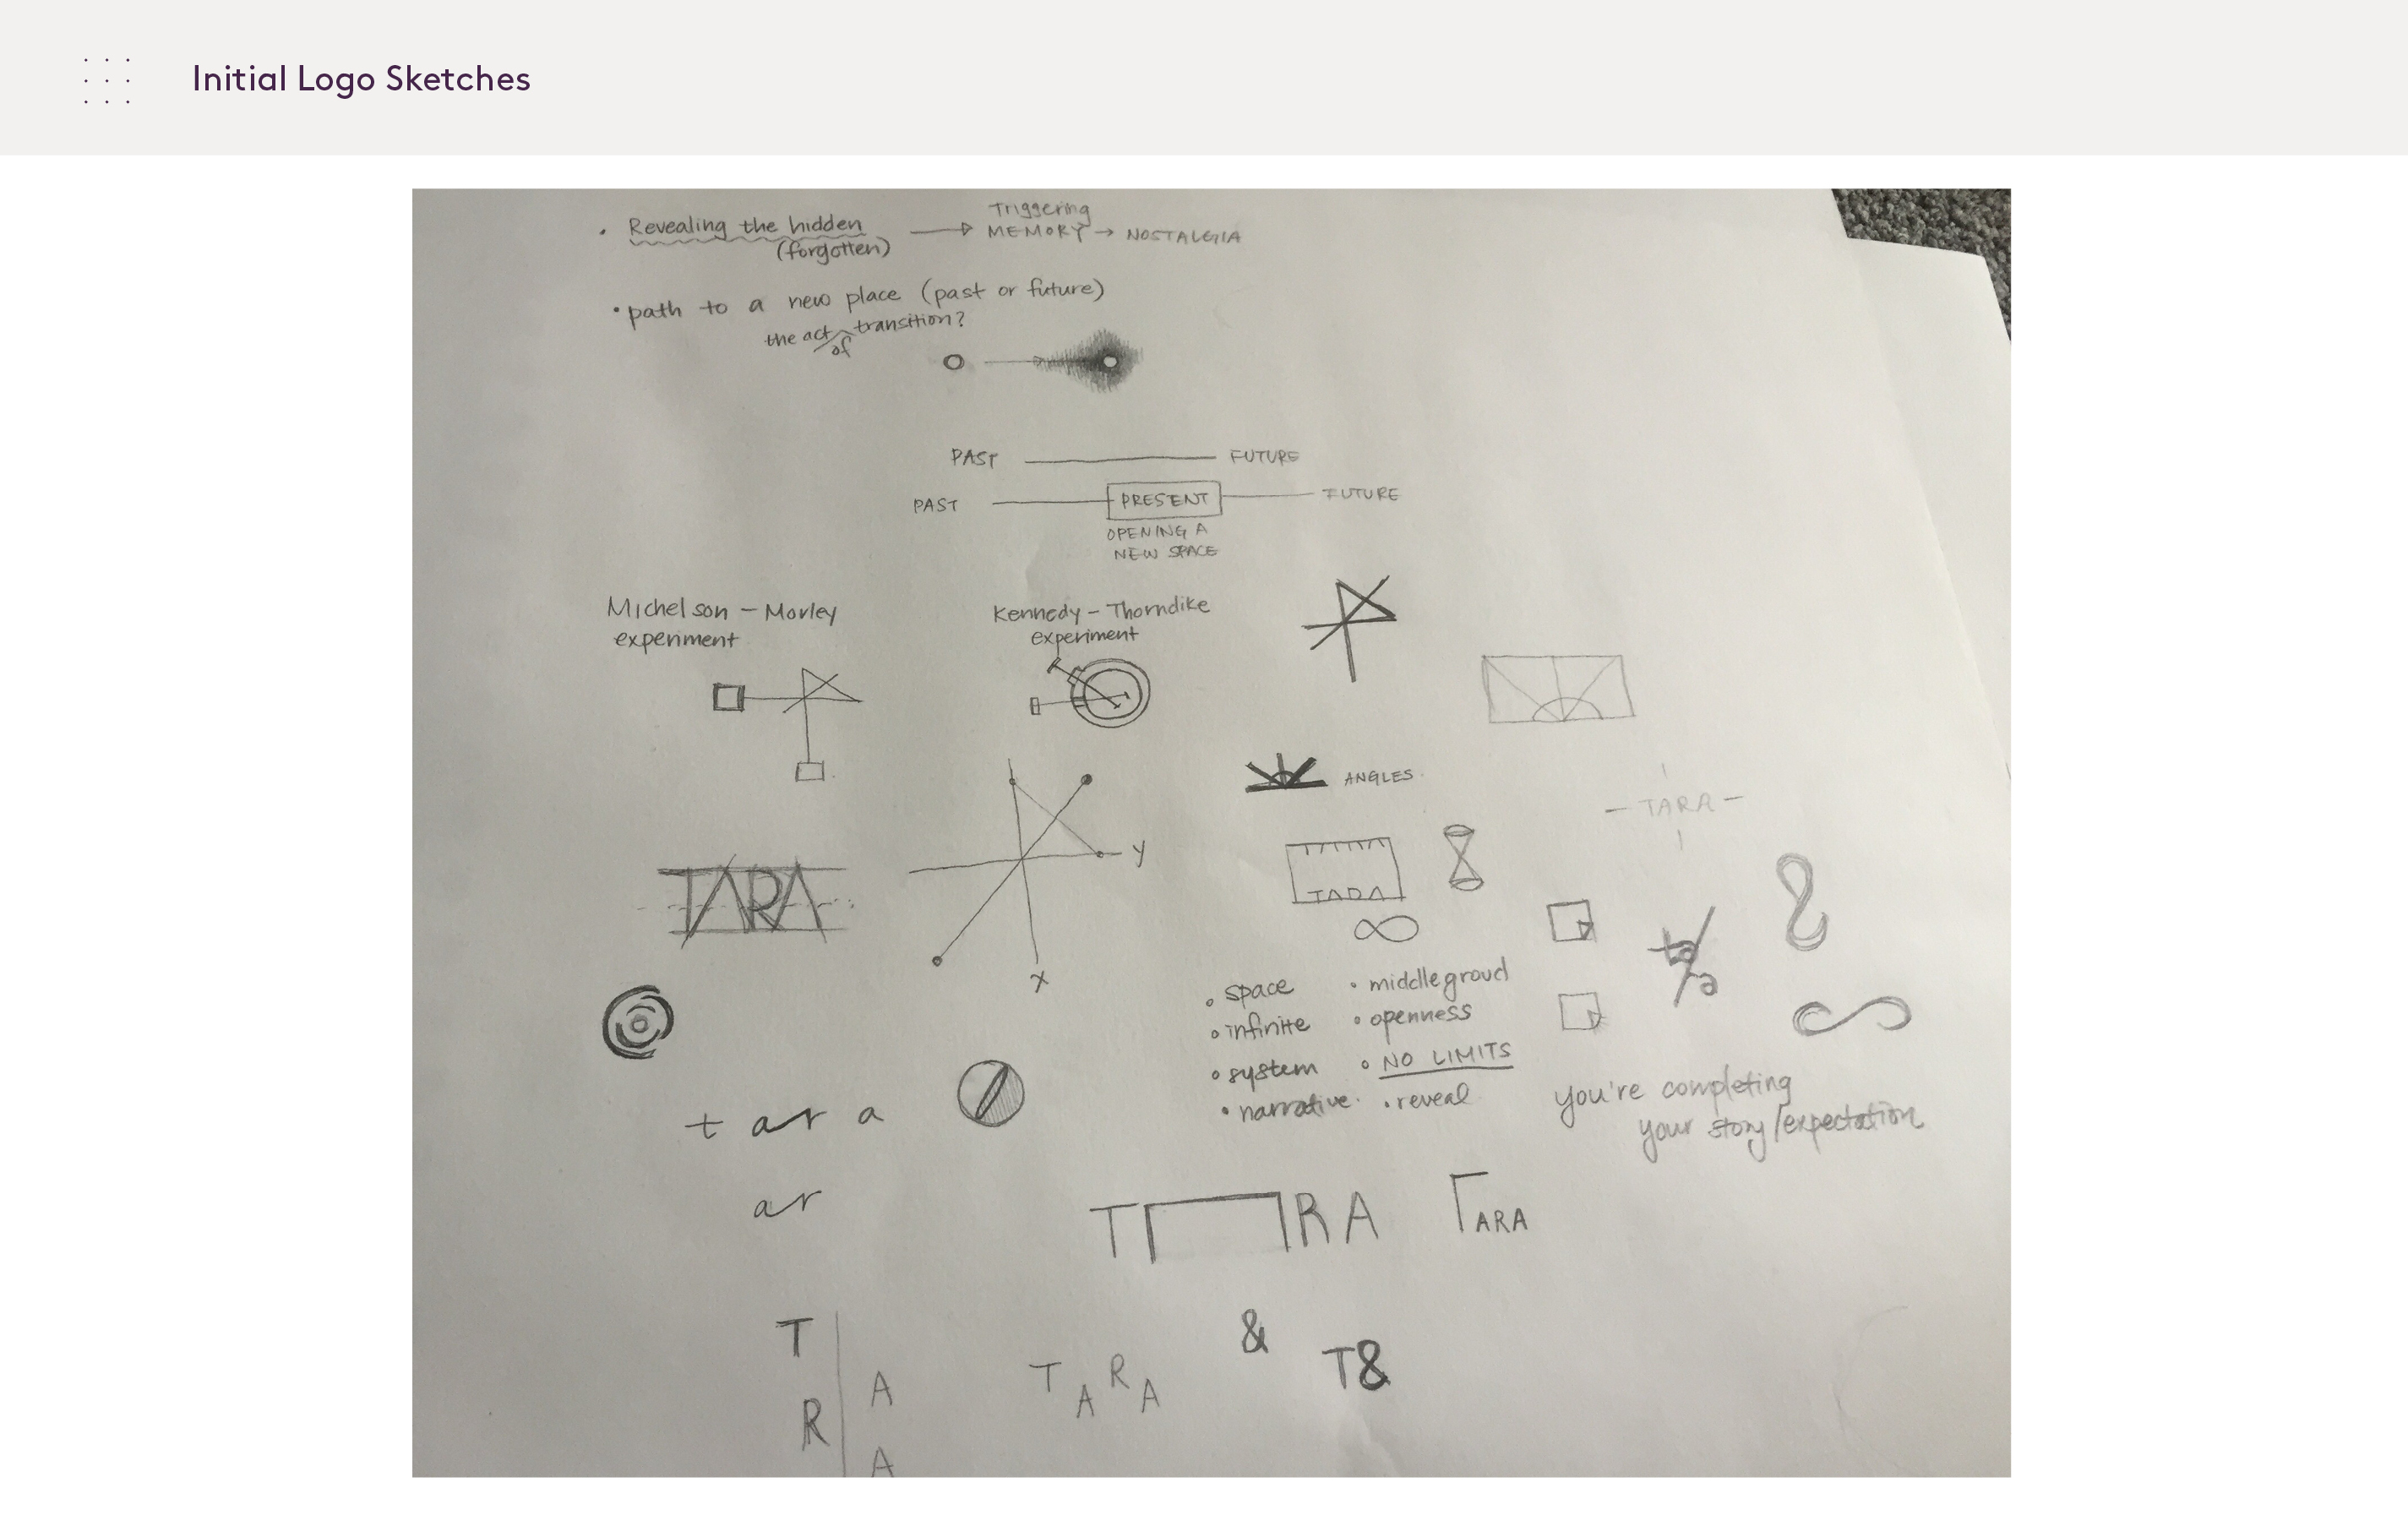 Initial Logo Sketches
• Revealing the hidden
(forgotten)
Triggering
MEMORY → NOSTALGIA
• path to a new place (past or future)
the act of transition?
PAST FUTURE
PAST PRESENT FUTURE
OPENING A
NEW SPACE
Michelson - Morley
experiment
Kennedy - Thorndike
experiment
ANGLES
- TARA -
y
x
TARA
TARA
• space
• infinite
• system
• narrative
• middlegroud
• openness
• NO LIMITS
• reveal
ta/ra
you're completing
your story/expectation
t a r a
ar
T RA
TARA
&
T&
T
R
A
A
T A R A